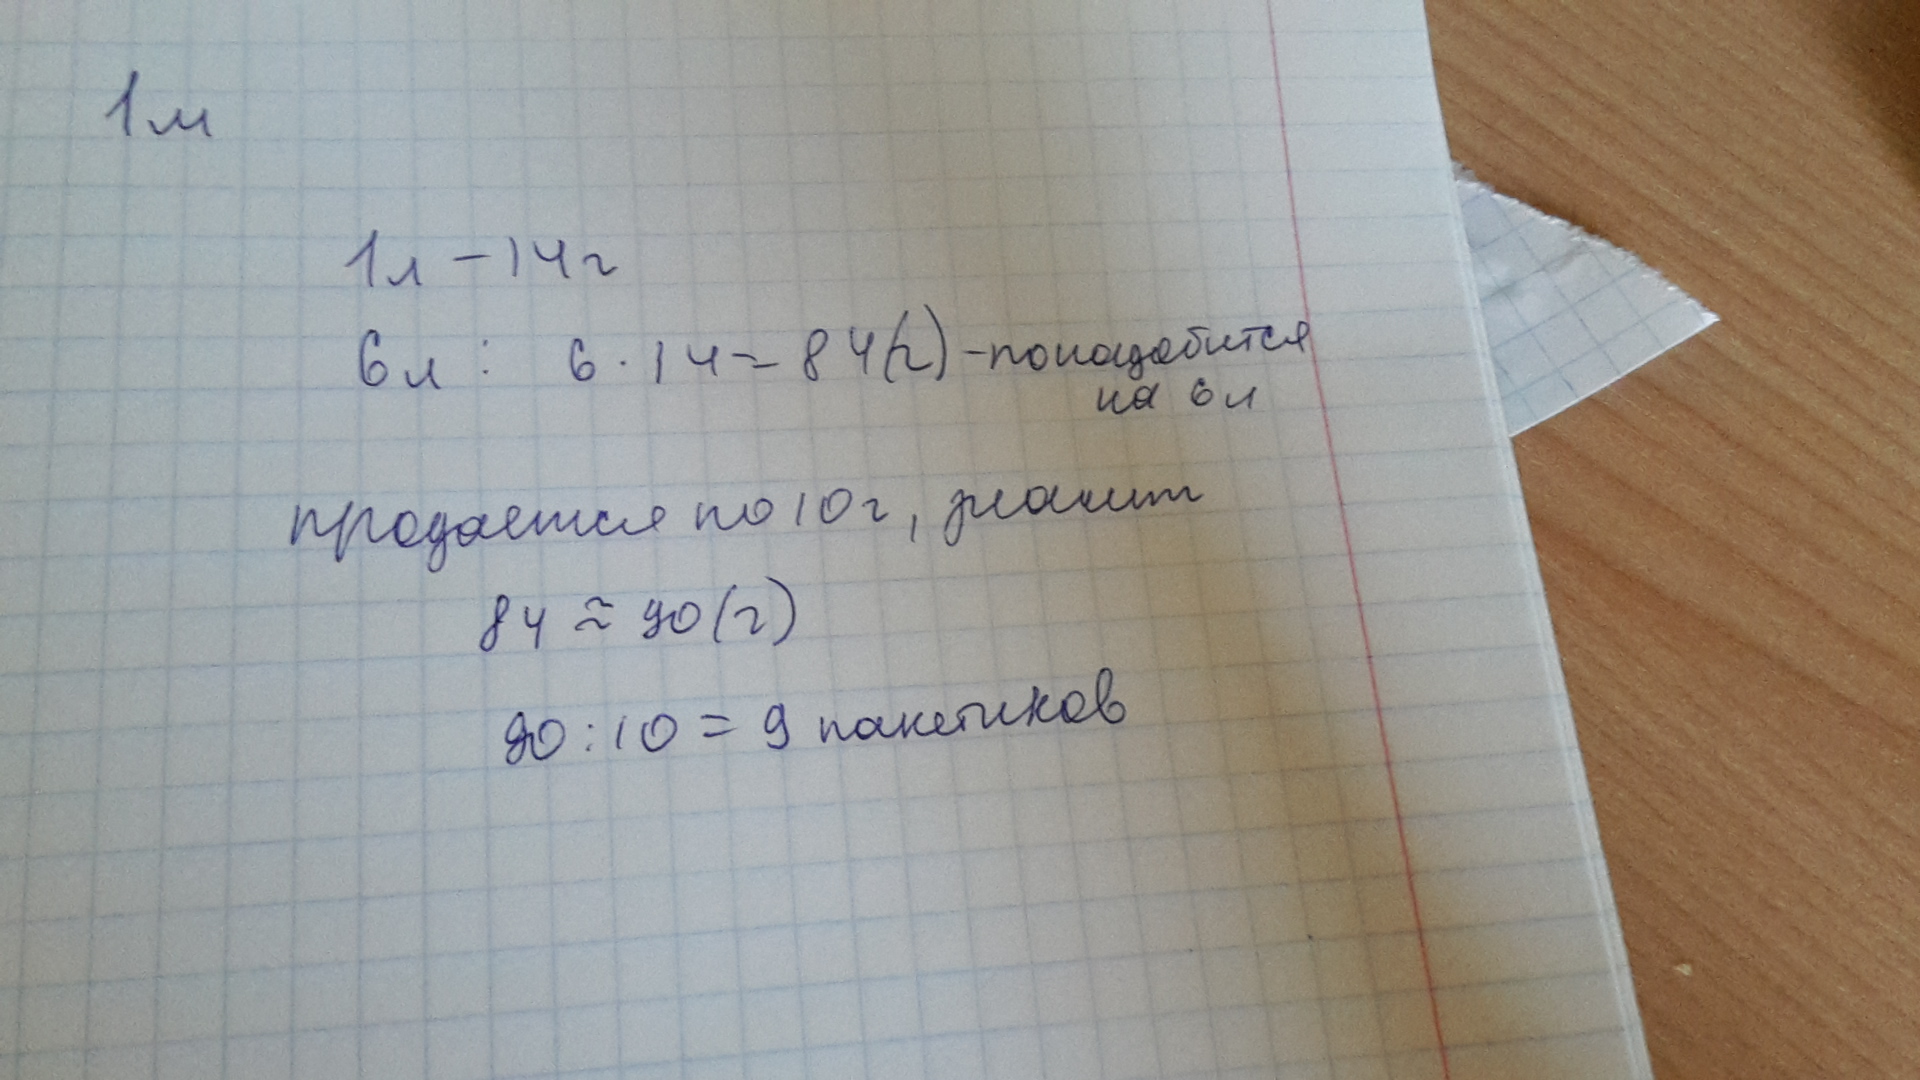 1м
1л - 14г
6л : 6 · 14 = 84(г) - понадобится
на 6л
продается по 10г, значит
84 ≈ 90(г)
90 : 10 = 9 пакетиков